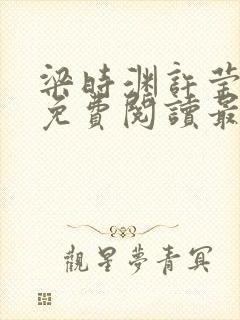 梁時渊許莹
免費閱讀最
觀星夢青冥